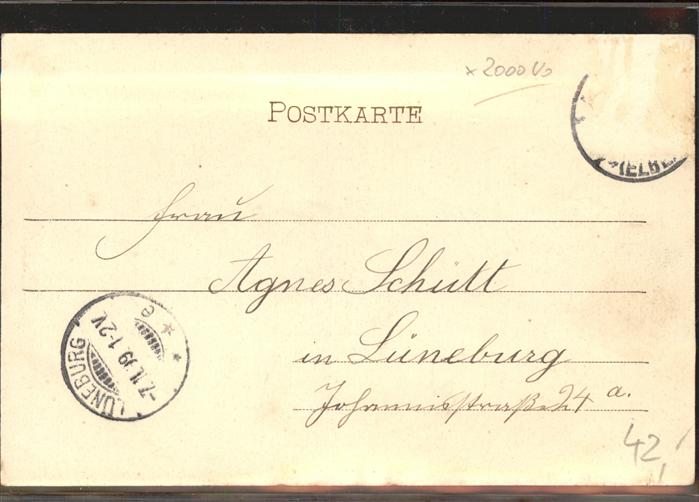 ×2000 Vo
POSTKARTE
(ELBE
Frau
Agnes Schütt
in Lüneburg
Johannisstraße 24 a.
LÜNEBURG
-7.11.99. 1-2V
* * e
42,